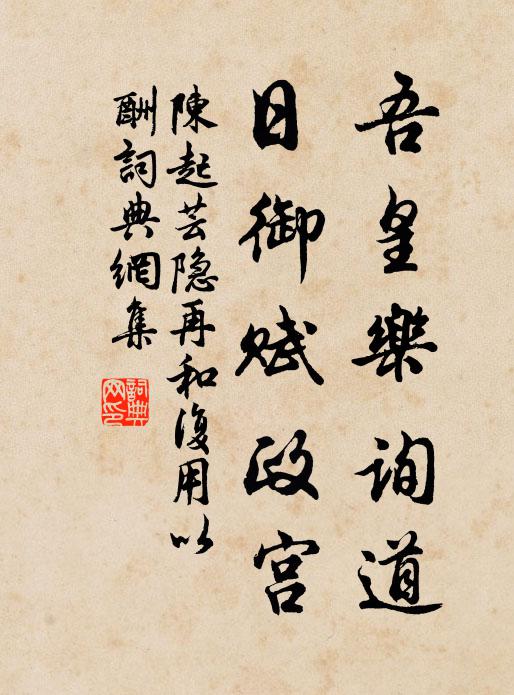 吾皇樂詢道
日御賦政宮
陳起芸隐再和復用以
酬詞典網集
詞典網印